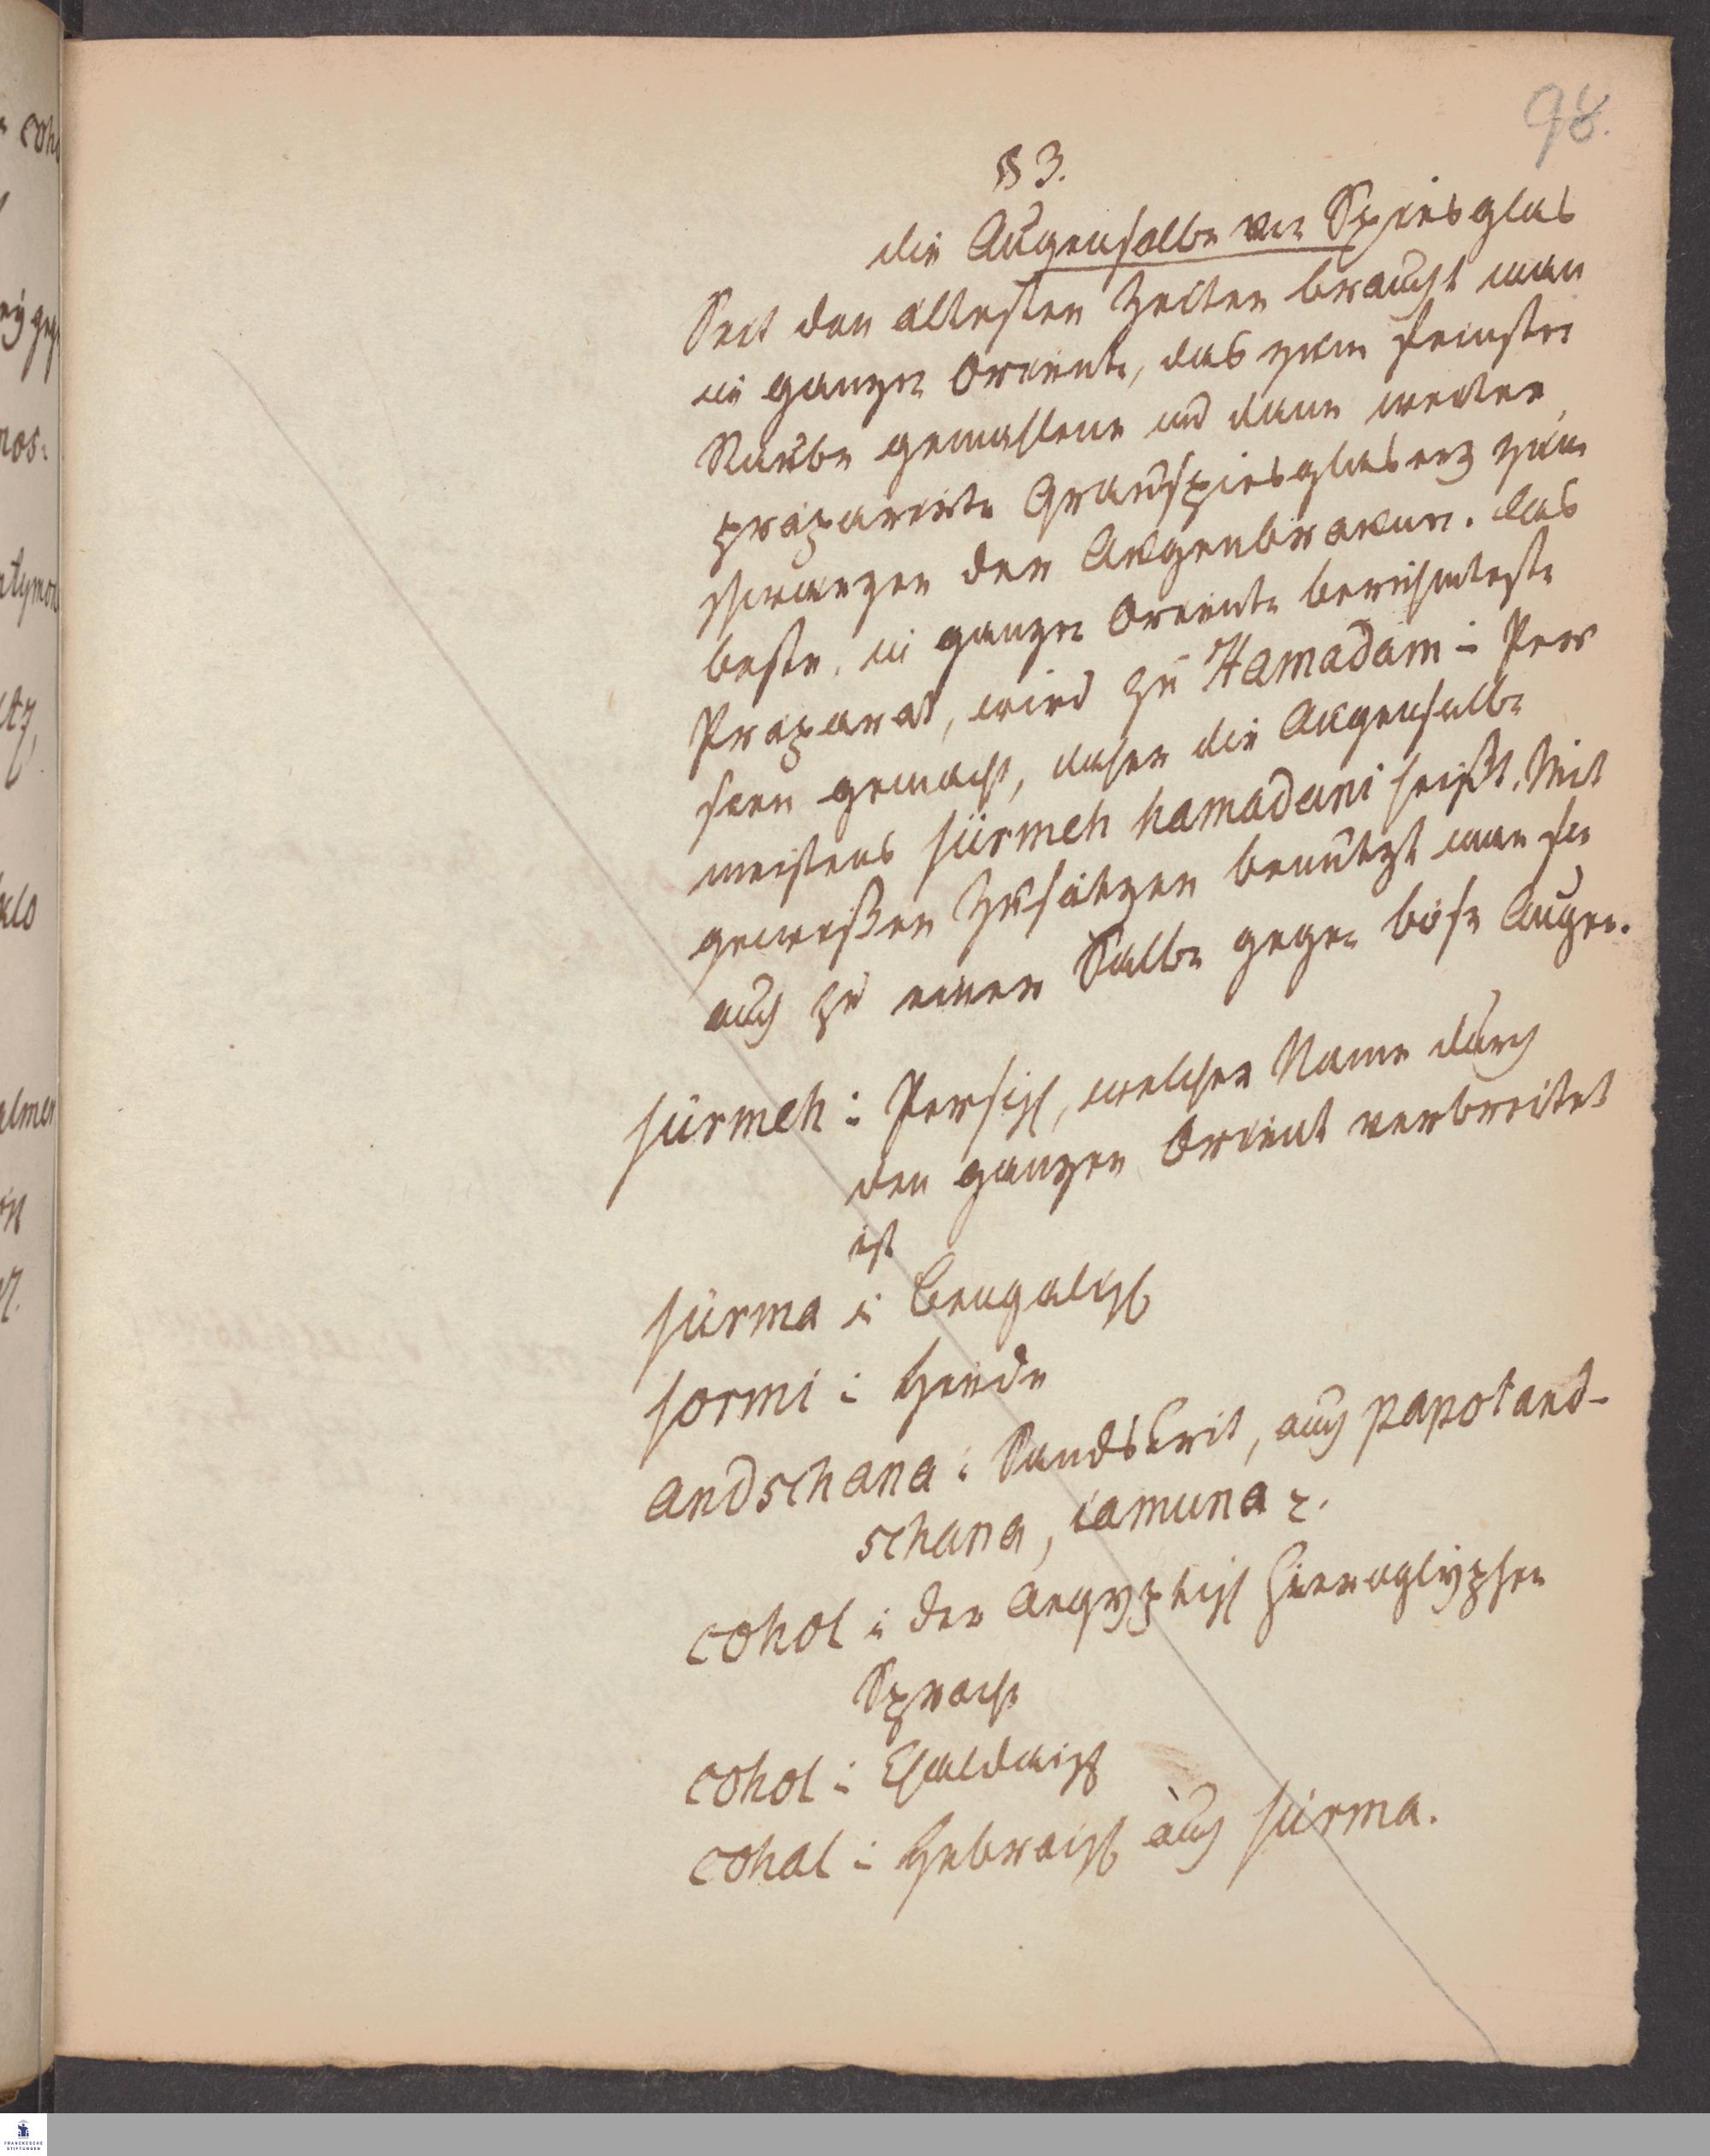 98.
§ 3.
die Augensalbe von Spiesglas
Seit den ältesten Zeiten braucht man
in ganzen Oriente, das zum feinsten
Staube gemahlene und dann weiter
præparirte Grauspiesglaserz zum
schwarzen der Augenbraunen. das
beste, in ganzen Oriente berühmteste
Præparat, wird zu Hamadam in Per
sien gemacht, daher die Augensalbe
meistens sürmeh hamadani heißt. Mit
gewissen Zusätzen benutzt man sie
auch zu einer Salbe gegen böse Augen.
sürmeh in Persisch, welcher Name durch
den ganzen Orient verbreitet
ist
sürma in Bengalisch
sormi in Hindu
andschana in Sandskrit, auch papotand-
schana, iamuna ꝛ.
cohol in der Aegyptisch Hieroglyphen
Sprache
cohol in Chaldaisch
cohal in Hebraisch auch sürma.
FRANCKESCHE
STIFTUNGEN